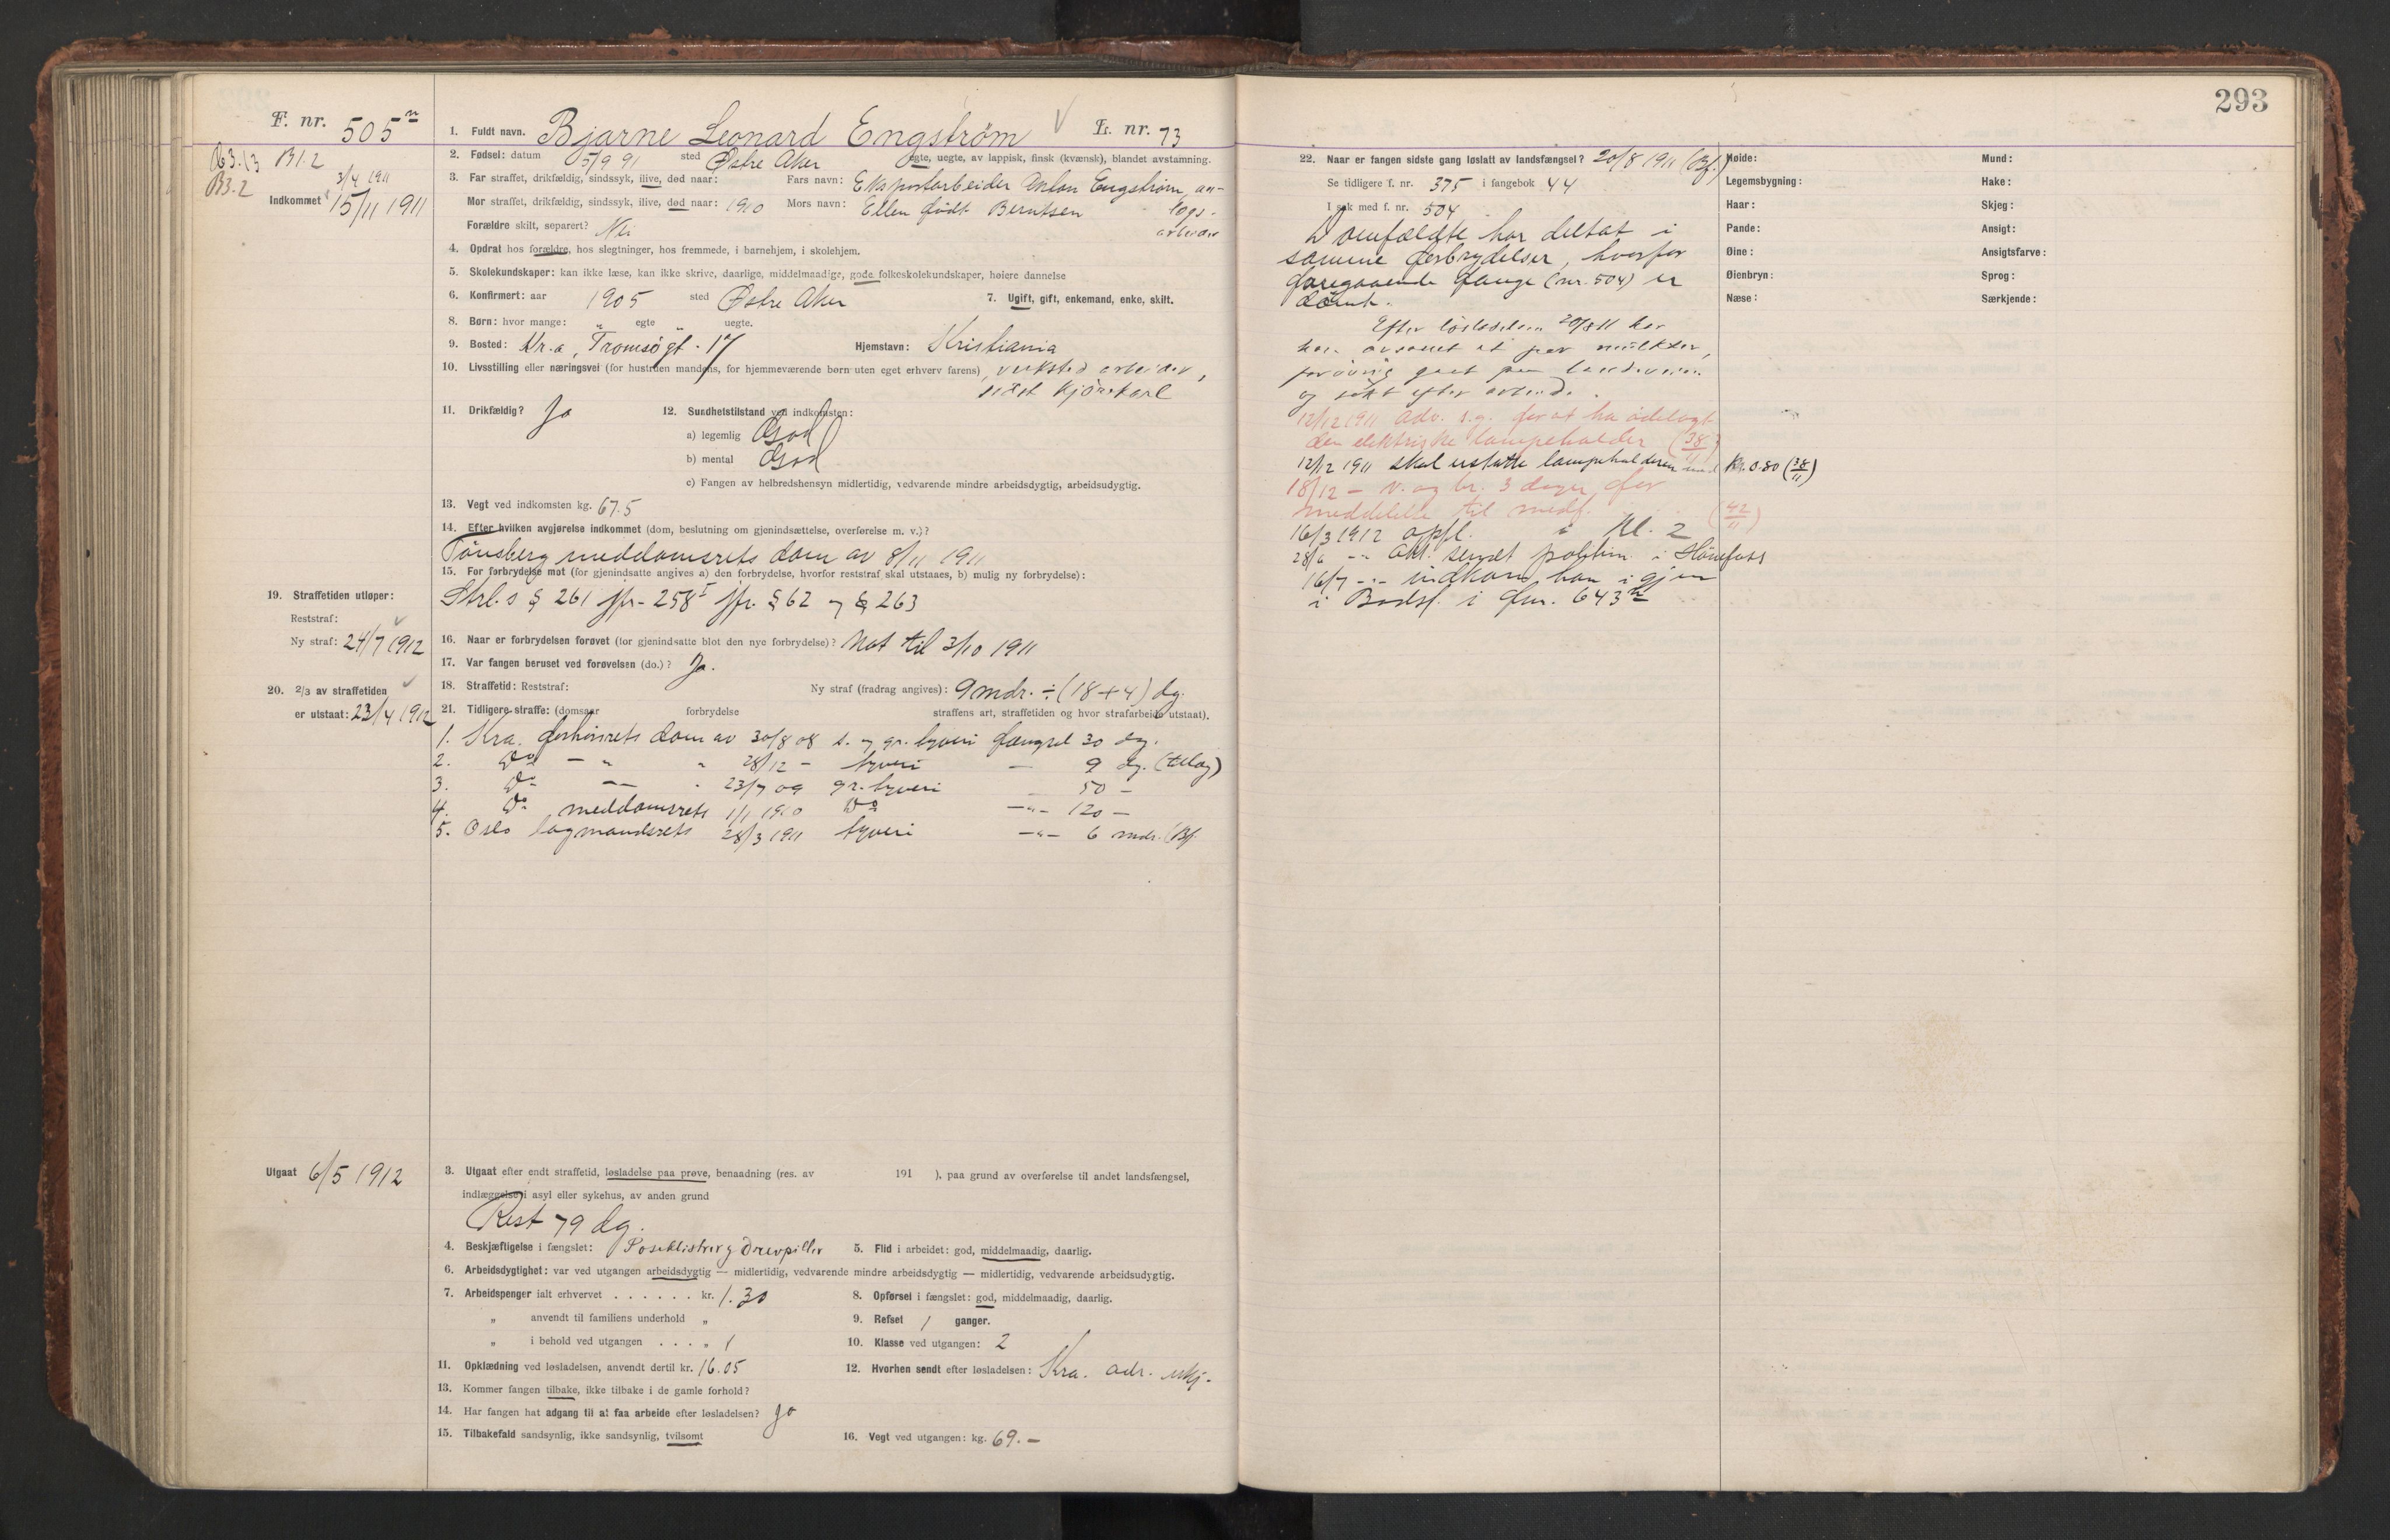 293
F. nr. 505
1. Fuldt navn. Bjarne Leonard Engström L. nr. 73
B3.13 B1.2
B3.2
3/4 1911
Indkommet 15/11 1911
2. Fødsel: datum 5/9 91 sted Østre Aker egte, uegte, av lappisk, finsk (kvænsk), blandet avstamning.
3. Far straffet, drikfældig, sindssyk, ilive, død naar: Fars navn: Ekspostarbeider Anton Engström, an-
Mor straffet, drikfældig, sindssyk, ilive, død naar: 1910 Mors navn: Ellen født Berntsen lægs-
arbeider
Forældre skilt, separert? Nei
4. Opdrat hos forældre, hos slegtninger, hos fremmede, i barnehjem, i skolehjem.
5. Skolekundskaper: kan ikke læse, kan ikke skrive, daarlige, middelmaadige, gode folkeskolekundskaper, høiere dannelse
6. Konfirmert: aar 1905 sted Østre Aker 7. Ugift, gift, enkemand, enke, skilt.
8. Børn: hvor mange: " egte " uegte.
9. Bosted: Kr.a, Tromsögt. 17 Hjemstavn: Kristiania
10. Livsstilling eller næringsvei (for hustruen mandens, for hjemmeværende børn uten eget erhverv farens), verksted arbeider,
sidst kjörekarl
11. Drikfældig? Ja 12. Sundhetstilstand ved indkomsten:
a) legemlig God
b) mental God
c) Fangen av helbredshensyn midlertidig, vedvarende mindre arbeidsdygtig, arbeidsudygtig.
13. Vegt ved indkomsten kg. 67.5
14. Efter hvilken avgjørelse indkommet (dom, beslutning om gjenindsættelse, overførelse m. v.)?
Tönsberg meddomsrets dom av 8/11 1911
15. For forbrydelse mot (for gjenindsatte angives a) den forbrydelse, hvorfor reststraf skal utstaaes, b) mulig ny forbrydelse):
Strl.s § 261 jfr. 258 I jfr. § 62 og § 263
19. Straffetiden utløper:
Reststraf:
Ny straf: 24/7 1912
16. Naar er forbrydelsen forøvet (for gjenindsatte blot den nye forbrydelse)? Nat til 3/10 1911
17. Var fangen beruset ved forøvelsen (do.)? Ja.
18. Straffetid: Reststraf: Ny straf (fradrag angives): 9 mdr. ÷ (18+4) dg.
20. 2/3 av straffetiden
er utstaat: 23/4 1912
21. Tidligere straffe: (domsaar forbrydelse straffens art, straffetiden og hvor strafarbeide utstaat).
1. Kra. forhörsrets dom av 30/8 08 s. og gr. tyveri fængsel 30 dg.
2. Do — " " 28/12 — tyveri — 9 dg. (tillæg)
3. Do — " 23/7 09 gr. tyveri — 50 —
4. Do meddomsrets 1/1 1910 Do —"— 120 —
5. Oslo lagmandsrets 28/3 1911 tyveri —"— 6 mdr. (Bf.
Utgaat 6/5 1912
3. Utgaat efter endt straffetid, løsladelse paa prøve, benaadning (res. av 191 ), paa grund av overførelse til andet landsfængsel,
indlæggelse i asyl eller sykehus, av anden grund
Rest 79 dg.
4. Beskjæftigelse i fængslet: Poseklistrer og Drevpiller 5. Flid i arbeidet: god, middelmaadig, daarlig.
6. Arbeidsdygtighet: var ved utgangen arbeidsdygtig — midlertidig, vedvarende mindre arbeidsdygtig — midlertidig, vedvarende arbeidsudygtig.
7. Arbeidspenger ialt erhvervet . . . . . . kr. 1.30 8. Opførsel i fængslet: god, middelmaadig, daarlig.
" anvendt til familiens underhold " 9. Refset 1 ganger.
" i behold ved utgangen . . . " 1 10. Klasse ved utgangen: 2
11. Opklædning ved løsladelsen, anvendt dertil kr. 16.05 12. Hvorhen sendt efter løsladelsen: Kra. adr. ukj.
13. Kommer fangen tilbake, ikke tilbake i de gamle forhold?
14. Har fangen hat adgang til at faa arbeide efter løsladelsen? Ja
15. Tilbakefald sandsynlig, ikke sandsynlig, tvilsomt 16. Vegt ved utgangen: kg. 69.—
22. Naar er fangen sidste gang løslatt av landsfængsel? 20/8 1911 (Bf.)
Se tidligere f. nr. 375 i fangebok 44
I sak med f. nr. 504
Domfældte har deltat i
samme forbrydelser, hvorfor
foregaaende fange (nr. 504) er
dömt.
Efter lösladelsen 20/8 11 har
han avsonet et par mulkter,
forövrig gaat paa landeveien
og sökt efter arbeide.
12/12 1911 adv. s.g. for at ha ödelagt
den elektriske lampeholder (38/11)
12/12 1911 skal erstatte lampeholderen med Kr. 0.80 (38/11)
18/12 — v. og br. 3 dager for
meddelelse til medf. (42/11)
16/3 1912 opfl. i Kl. 2
28/6 -"- Akt. sendt politim. i Hönefoss
16/7 -"- indkom han igjen
i Bodsf. i fnr. 643
Høide:
Legemsbygning:
Haar:
Pande:
Øine:
Øienbryn:
Næse:
Mund:
Hake:
Skjeg:
Ansigt:
Ansigtsfarve:
Sprog:
Særkjende: